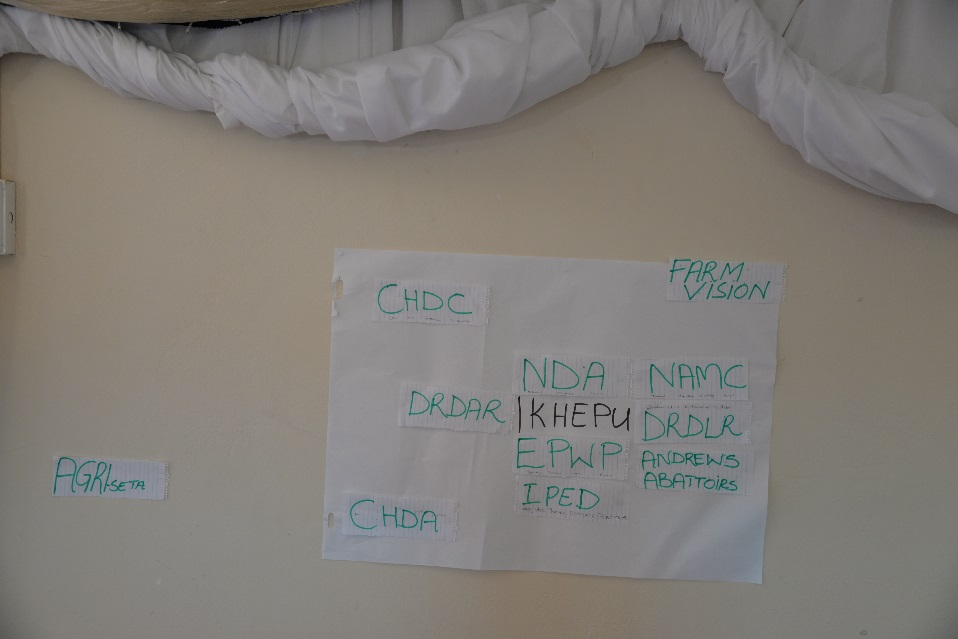 FARM
VISION
CHDC
NDA
NAMC
DRDAR
IKHEPU
DRDLR
EPWP
ANDREWS
ABATTOIRS
AGRISETA
IPED
CHDA